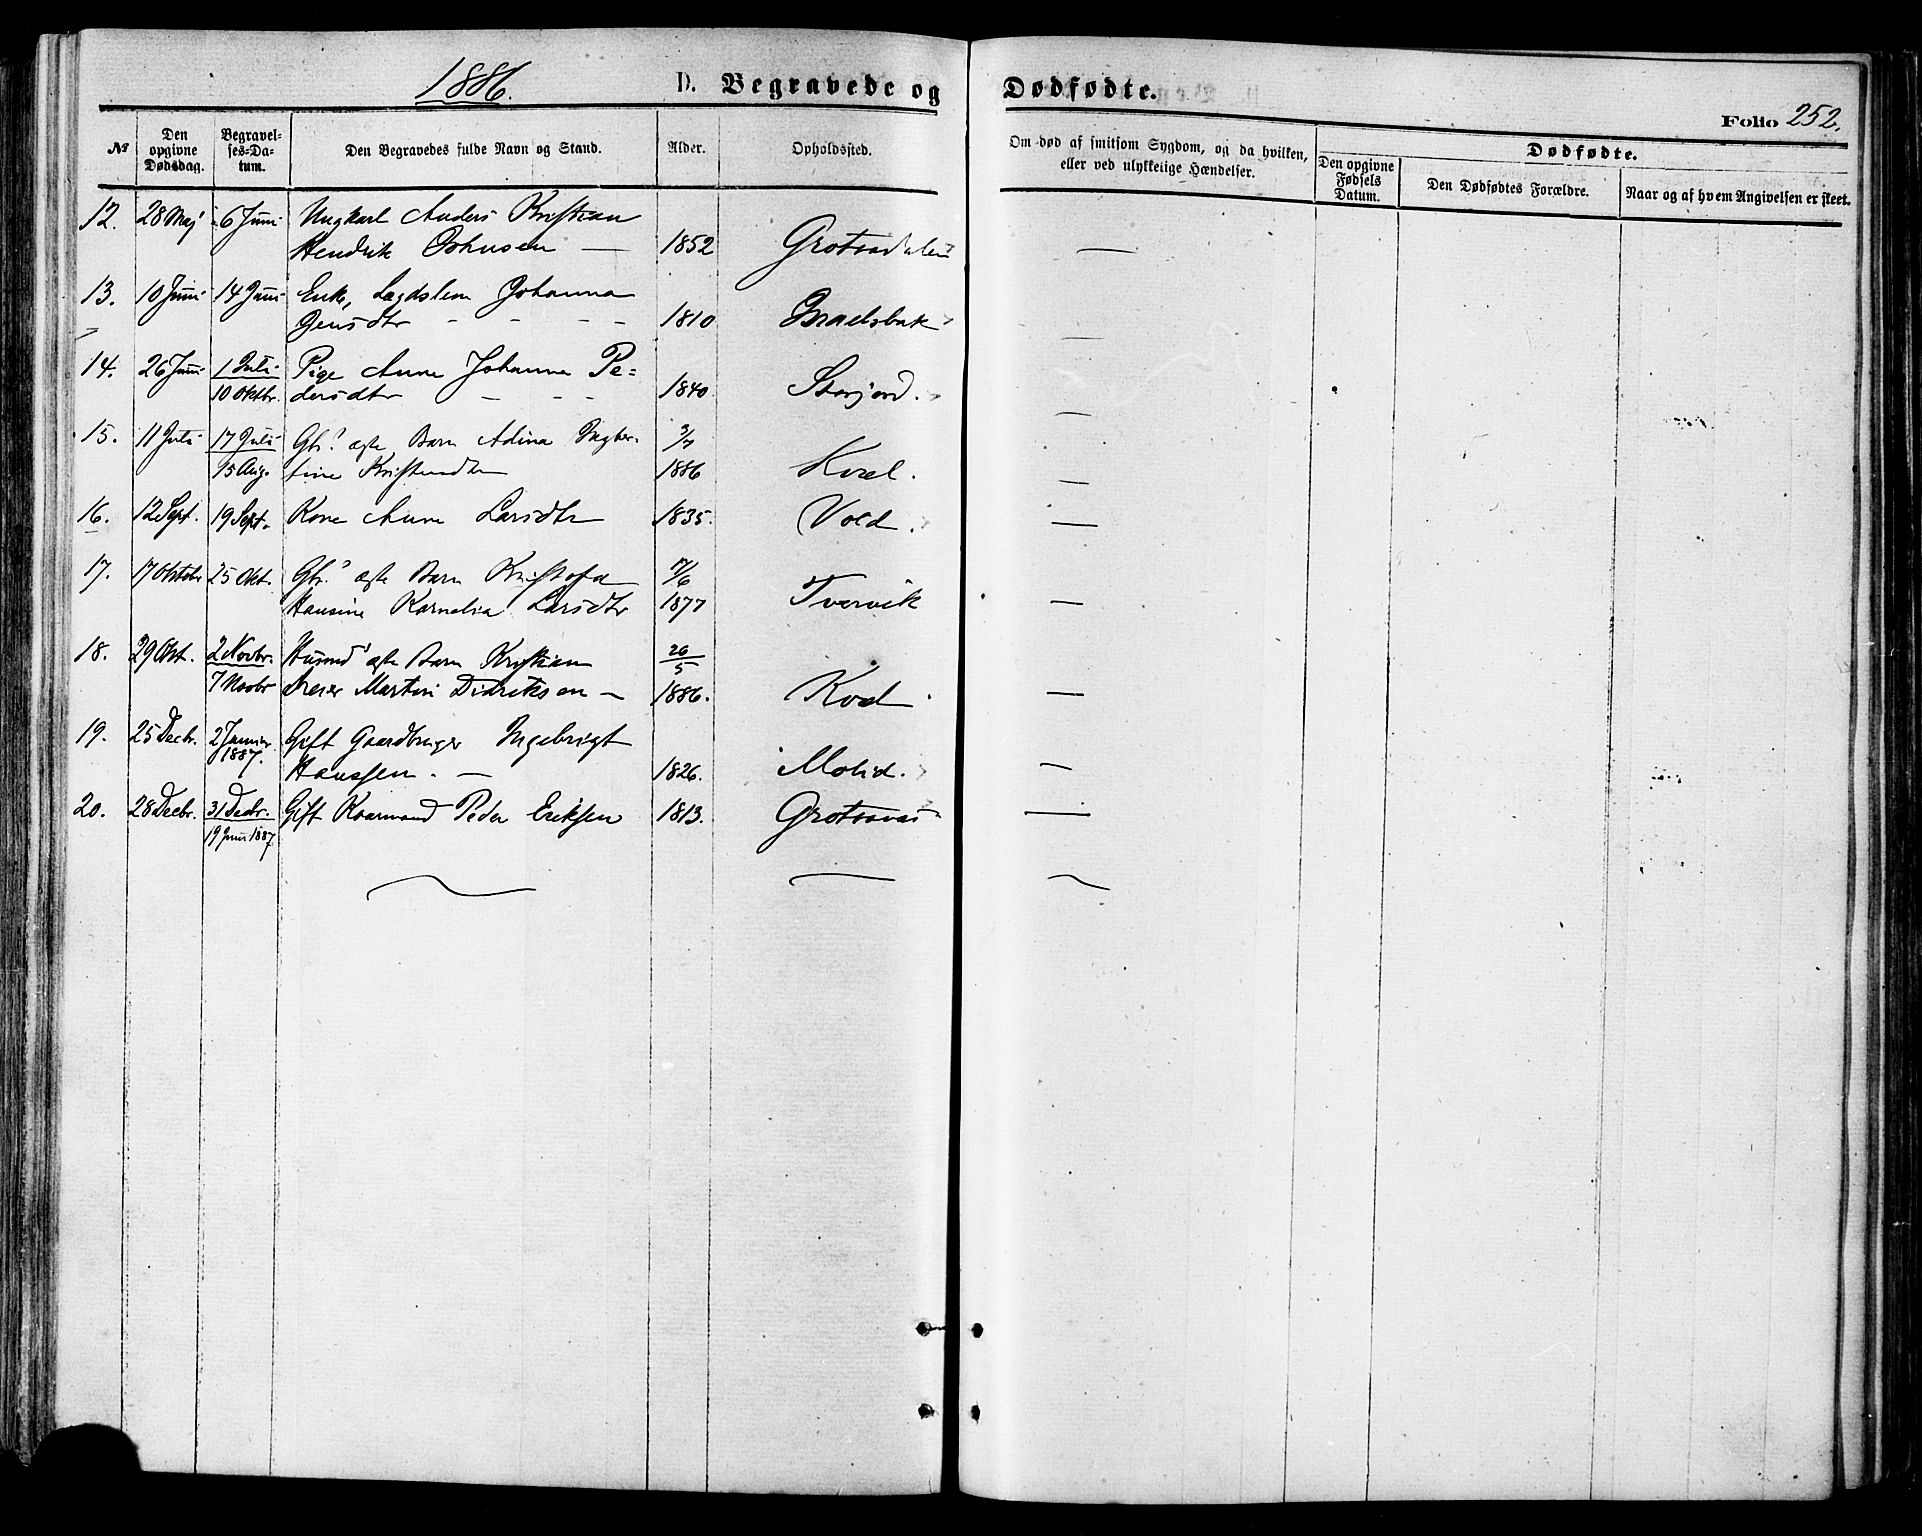 1886. D. Begravede og Dødfødte.
Folio 252.
№ Den opgivne Dødsdag. Begravelses-Datum. Den Begravedes fulde Navn og Stand. Alder. Opholdssted. Om død af smitsom Sygdom, og da hvilken, eller ved ulykkelige Hændelser. Den opgivne Fødsels Datum. Dødfødte. Den Dødfødtes Forældre. Naar og af hvem Angivelsen er skeet.
12. 28 Maj 6 Juni Ungkarl Anders Kristian
Hendrik 1852 —
13. 10 Juni 14 Juni Enke, Lægdslem Johanna
Jensdtr - - - - 1810 —
14. 26 Juni 1 Juli Pige Anne Johanna Pe=
10 Oktbr. dersdtr - - - 1840. Storjord. —
15. 11 Juli 17 Juli Gbr.s ægte Barn Adina Ingber-
15 Aug. tine 3/7 1886 Kvæl. —
16. 12 Sept. 19 Sept. Kone Anne Larsdtr 1835. Vold. —
17. 17 Oktobr 25 Okt. Gbr.s ægte Barn Kristofa 17/6
Hansine Kornelia Larsdtr 1877 Tvervik —
18. 29 Okt. 2 Novbr. Husmds ægte Barn Kristian 26/5
7 Novbr Martin Didriksen — 1886. —
19. 25 Decbr. 2 Januar 1887. Gift Gaardbruger Ingebrigt
Hanssen. — 1826. Molid. —
20. 28 Decbr. 31 Decbr. Gift Kaarmand Peder Eriksen 1813. —
19 Juni 1887.